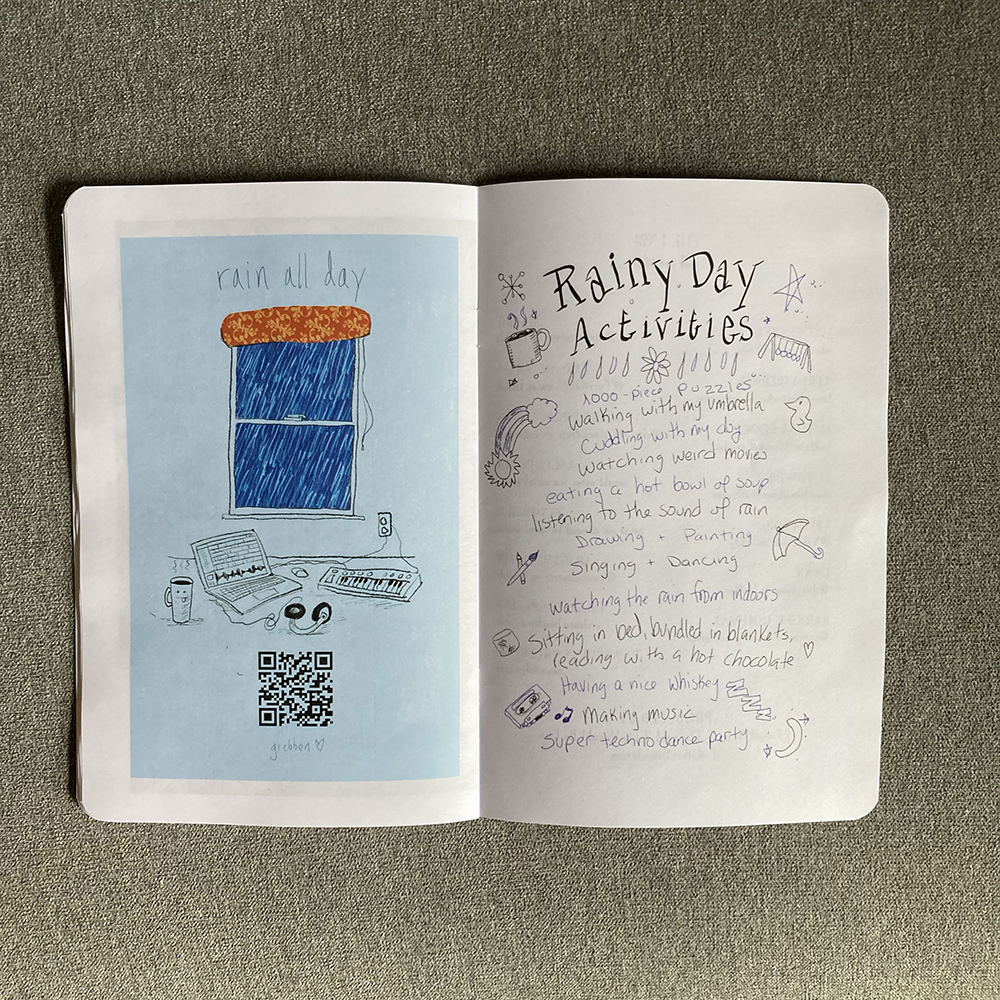 rain all day
grebben
Rainy Day
Activities
1000-piece puzzles
Walking with my umbrella
Cuddling with my dog
Watching weird movies
eating a hot bowl of soup
listening to the sound of rain
Drawing + Painting
Singing + Dancing
Watching the rain from indoors
Sitting in bed, bundled in blankets,
reading with a hot chocolate
Having a nice whiskey
Making music
Super techno dance party